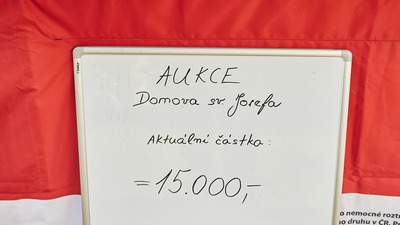 AUKCE
Domova sv Josefa
Aktuální částka:
=15.000,-
o nemocné roztr
ho druhu v ČR. Po